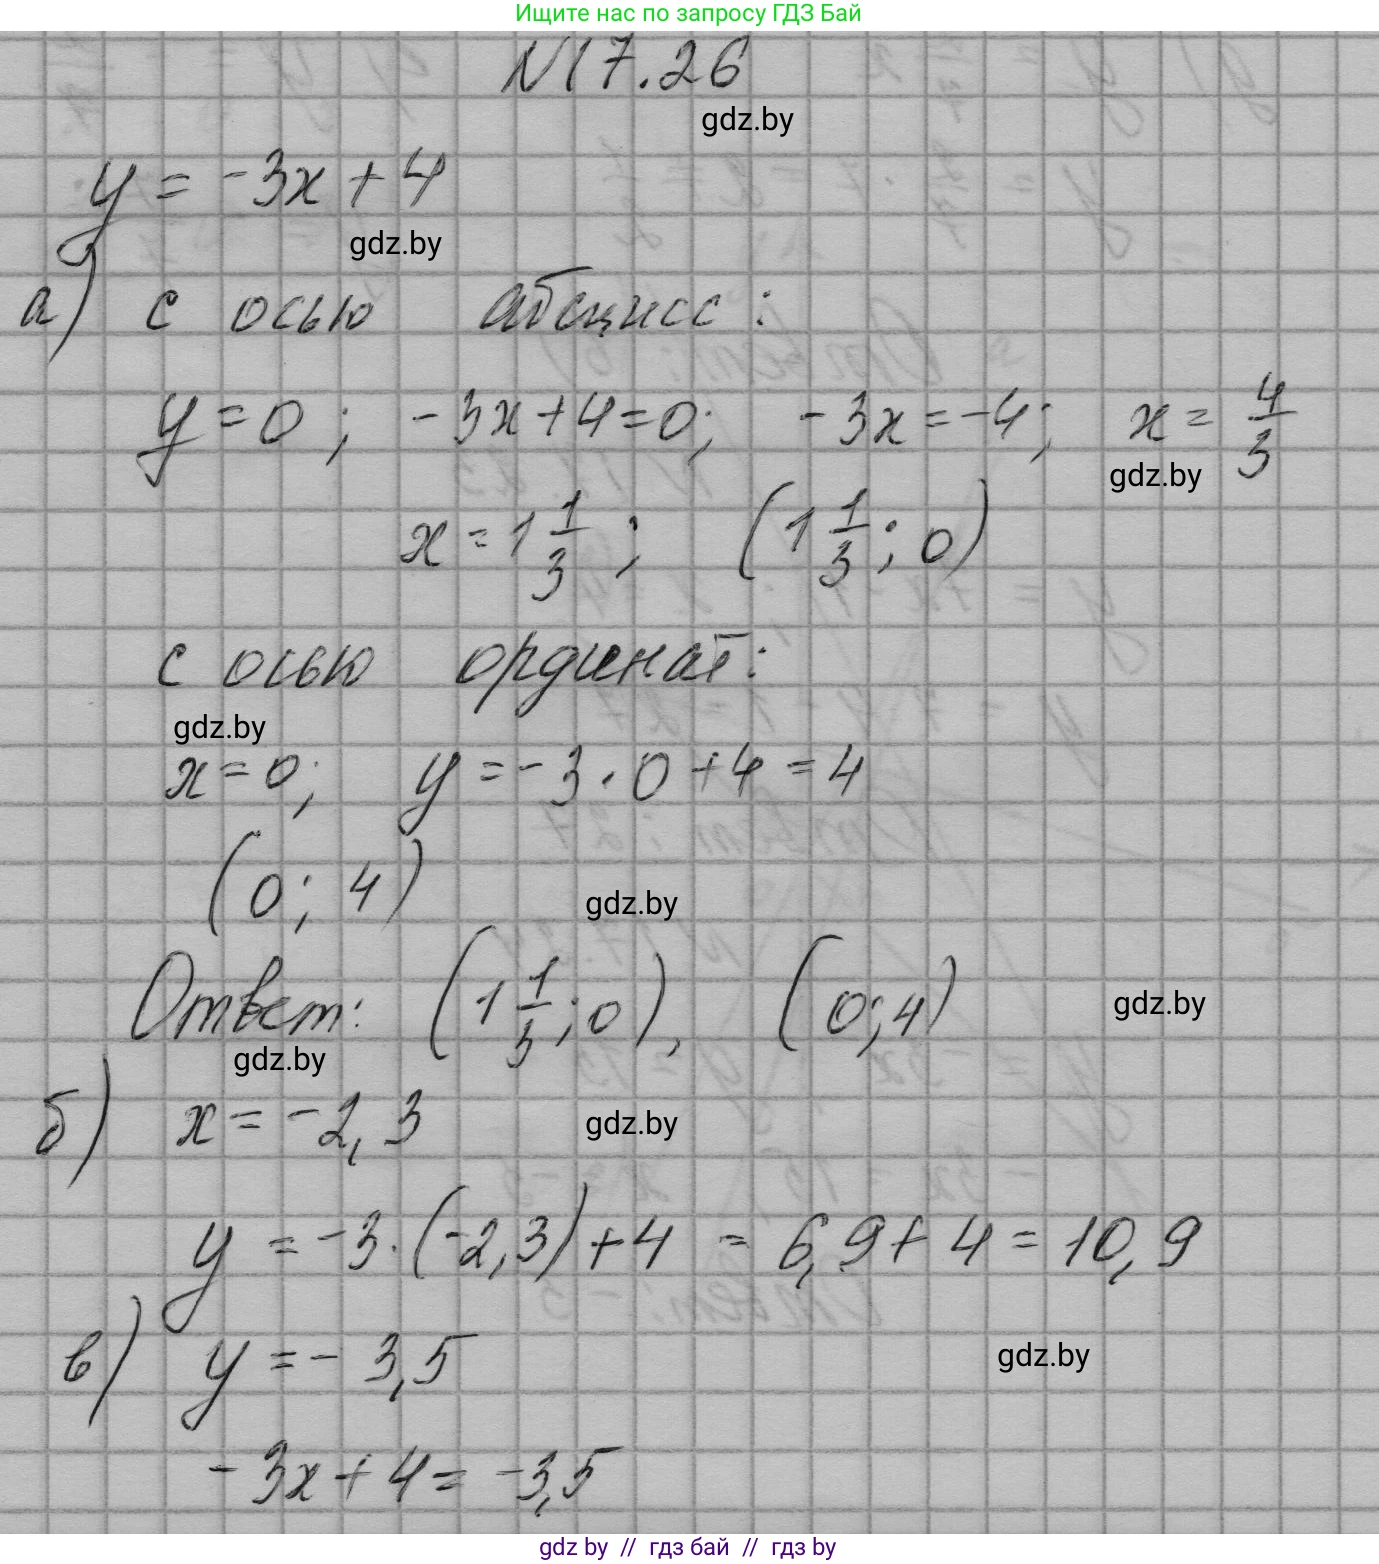 Ищите нас по запросу ГДЗ Бай
N 17.26
gdz.by
y = -3x + 4
gdz.by
а) с осью абсцисс:
y = 0; -3x + 4 = 0; -3x = -4; x = 4/3
gdz.by
x = 1 1/3; (1 1/3; 0)
с осью ординат:
gdz.by
x = 0; y = -3 · 0 + 4 = 4
(0; 4)
gdz.by
Ответ: (1 1/3; 0), (0; 4)
gdz.by
gdz.by
б) x = -2,3
gdz.by
y = -3 · (-2,3) + 4 = 6,9 + 4 = 10,9
в) y = -3,5
gdz.by
-3x + 4 = -3,5
gdz by // гдз бай // гдз by